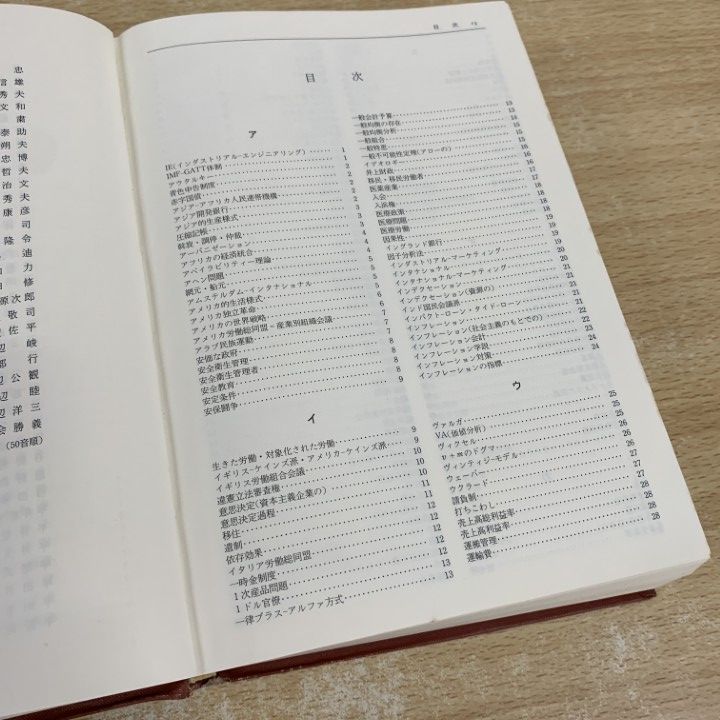 忠
信雄
秀夫
文和
粛
泰助
朔夫
忠博
哲夫
治文
秀夫
康彦
司
隆令
迪
力
修
原次郎
敬司
佐平
辺峻
部行
辺公観
辺睦
辺洋三
会勝義
(50音順)
目次
目次
ア
IE(インダストリアル-エンジニアリング) 1
IMF-GATT体制 1
アウタルキー 2
青色申告制度 2
赤字国債 2
アジア-アフリカ人民連帯機構 2
アジア開発銀行 2
アジア的生産様式 3
圧縮記帳 3
斡旋・調停・仲裁 3
アーバニゼーション 4
アフリカの経済統合 4
アベイラビリティー理論 4
アヘン問題 5
網元・船元 5
アムステルダム-インタナショナル 5
アメリカ的生活様式 6
アメリカ独立革命 6
アメリカの世界戦略 6
アメリカ労働総同盟-産業別組織会議 7
アラブ民族運動 7
安価な政府 7
安全衛生管理 8
安全衛生管理者 8
安全教育 8
安定条件 8
安保闘争 9
イ
生きた労働・対象化された労働 9
イギリス-ケインズ派・アメリカ-ケインズ派 9
イギリス労働組合会議 10
違憲立法審査権 10
意思決定(資本主義企業の) 11
意思決定過程 11
移住 12
遺制 12
依存効果 12
イタリア労働総同盟 12
一時金制度 12
1次産品問題 12
1ドル官僚 13
一律プラス-アルファ方式 13
一般会計予算 13
一般均衡の存在 13
一般均衡分析 14
一般組合 14
一般特恵 15
一般不可能性定理(アローの) 15
イデオロギー 15
井上財政 16
移民・移民労働者 16
医薬産業 17
入会 17
入浜権 18
医療政策 18
医療問題 18
医療労働 18
因果性 19
イングランド銀行 19
因子分析法 19
インダストリアル-マーケティング 20
インタナショナル 20
インタナショナル-マーケティング 20
インデクセーション 21
インデクセーション(資源の) 21
インド国民会議派 21
インパクト-ローン・タイド-ローン 21
インフレーション 21
インフレーション(社会主義のもとでの) 22
インフレーション会計 23
インフレーション学説 23
インフレーション対策 24
インフレーションの指標 24
ウ
ヴァルガ 25
VA(価値分析) 25
ヴィクセル 25
v+mのドグマ 26
ヴィンティジ-モデル 26
ウェーバー 26
ウクラード 27
請負制 27
打ちこわし 27
売上高総利益率 28
売上高利益率 28
運搬管理 28
運輸費 28